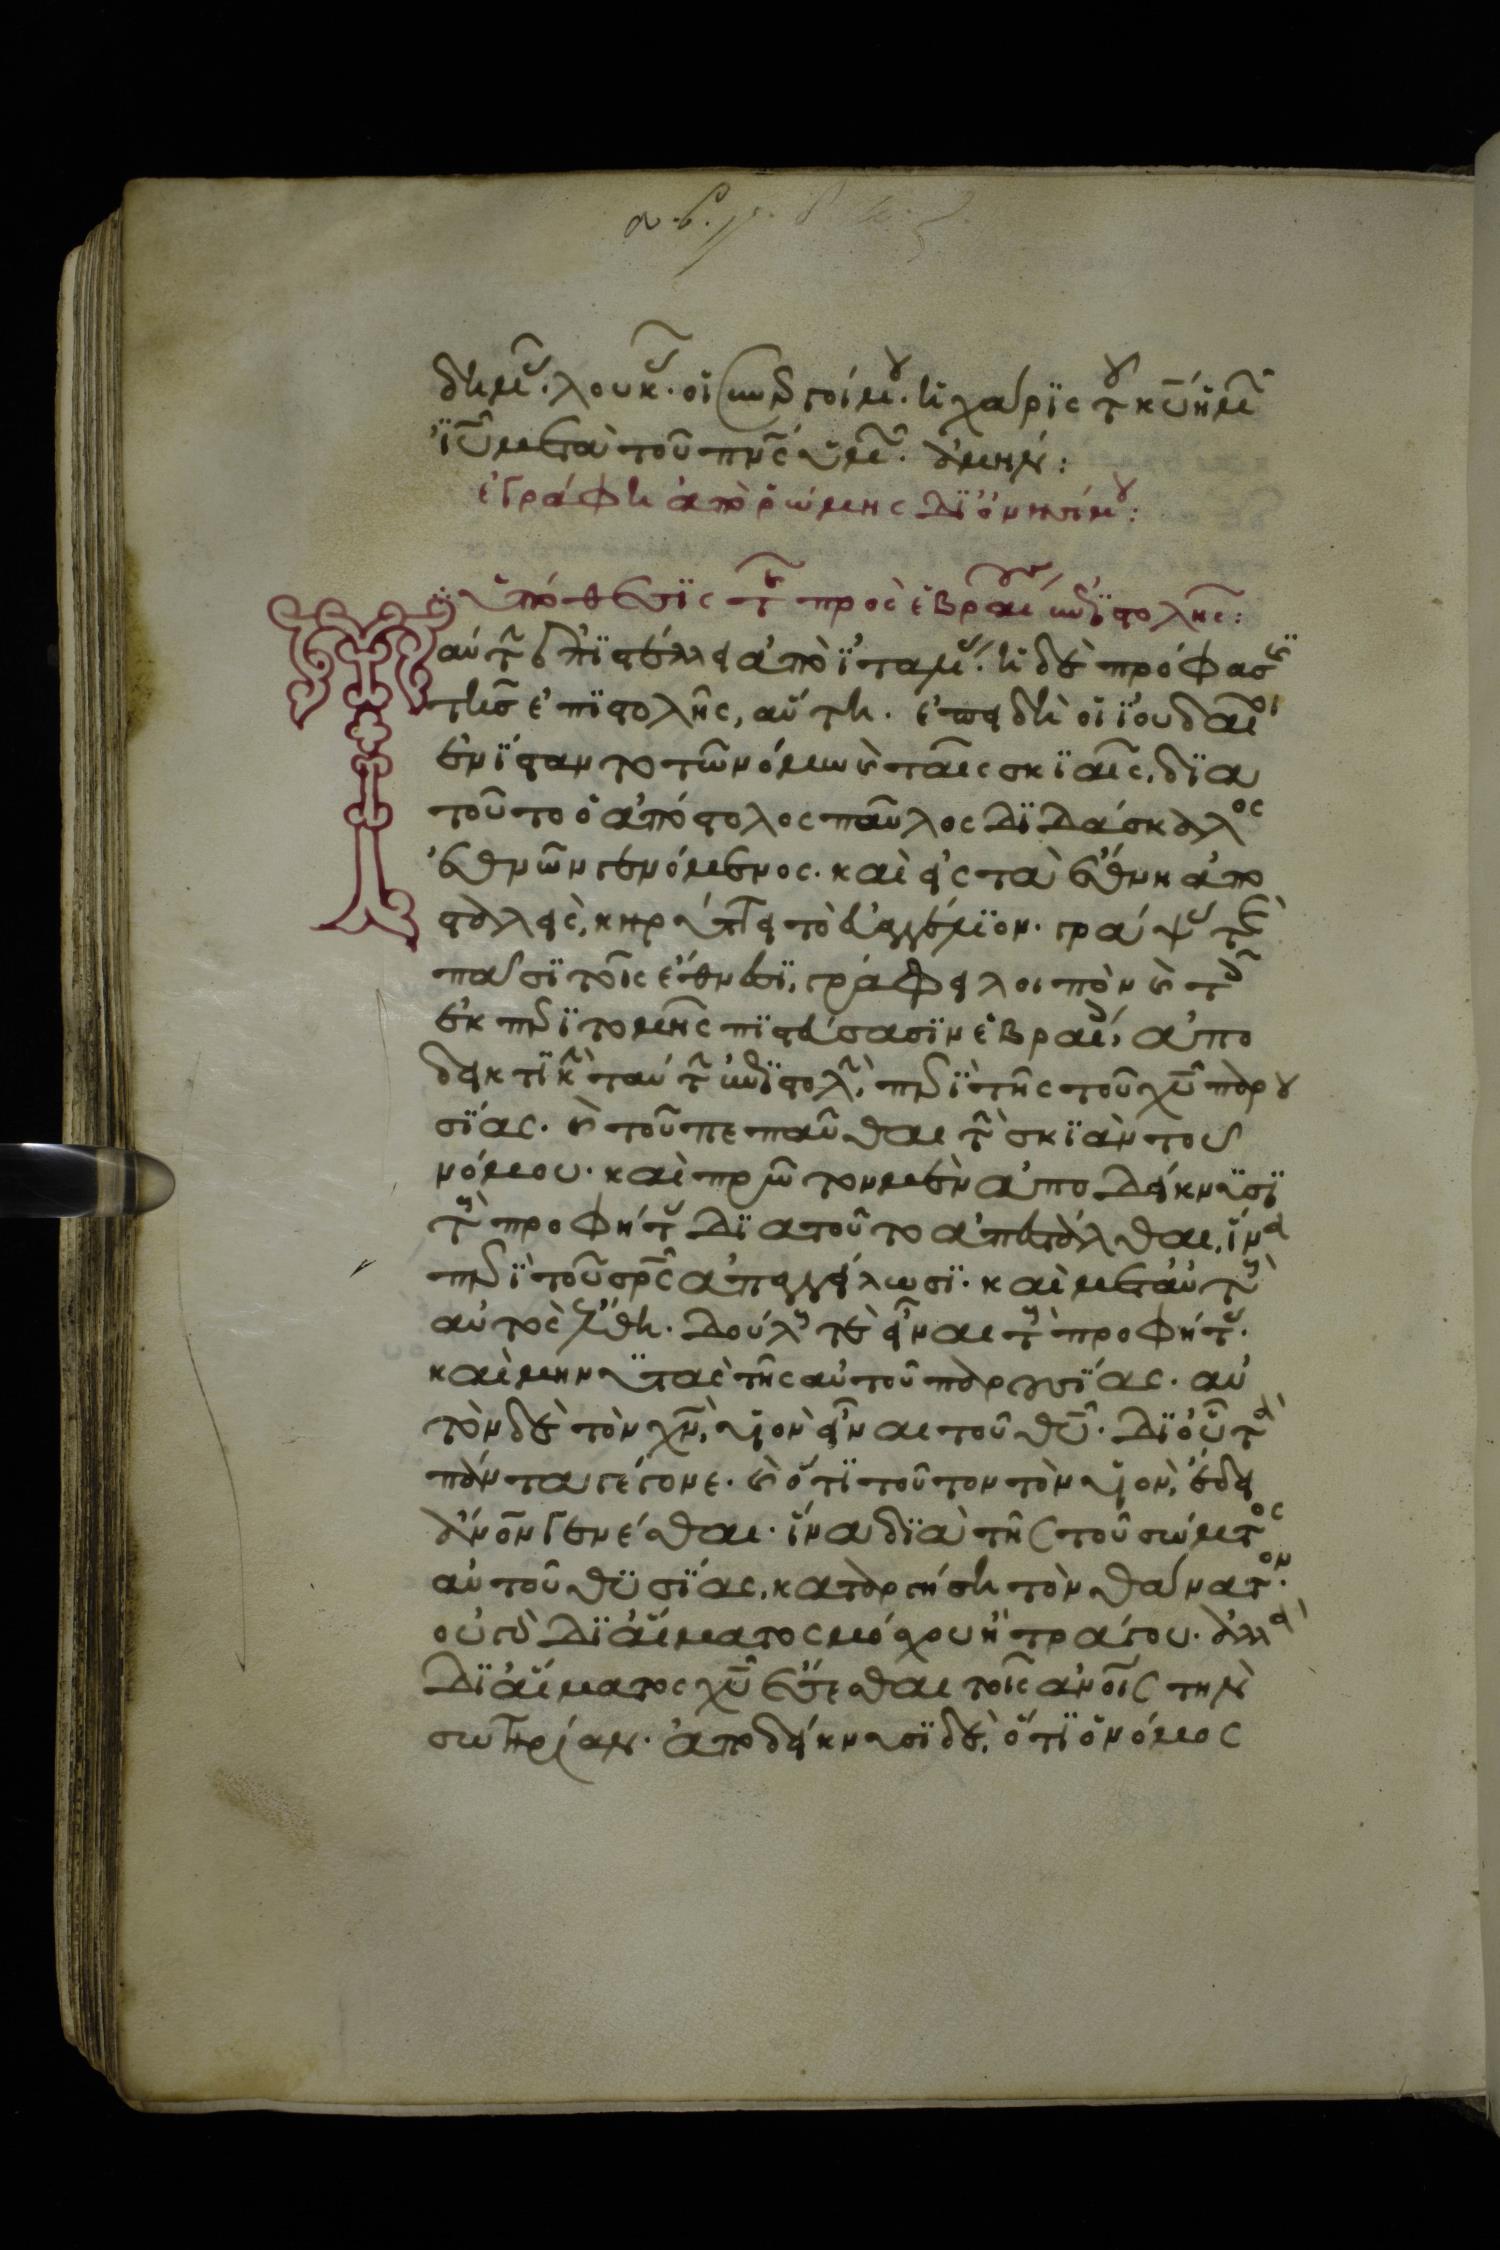 α. β. γ. δ
δημᾶς· λουκᾶς· οἱ συνεργοί μου· ἡ χάρις τοῦ κυ ἡμῶν
ἰυ μετὰ τοῦ πνς ὑμῶν· ἀμήν:
ἐγράφη ἀπὸ ῥώμης δϊ ὀνησίμου:
ὑπόθεσϊς τῆς πρὸς ἑβραίους ἐπϊστολῆς:
Ταύτην ἐπϊστέλλει ἀπὸ ἰταλίας· ἡ δὲ πρόφασϊς
τῆς ἐπϊστολῆς, αὕτη. ἐπειδὴ οἱ ἰουδαῖοι
ἐνΐσταντο τῶ νόμω καὶ ταῖς σκϊαῖς, δϊα
τοῦτο ὁ ἀπόστολος παῦλος δϊδάσκαλος
ἐθνῶν γενόμενος· καὶ εἰς τὰ ἔθνη ἀπο
σταλεὶς, κηρύξαι τὸ εὐαγγέλϊον· γράψας τε
πᾶσϊ τοῖς ἔθνεσϊ, γράφει λοιπὸν καὶ τοῖς
ἐκ περϊτομῆς πϊστεύσασϊν ἑβραίοις, ἀπο
δεικτϊκὴν ταύτην ἐπϊστολὴν, περϊ τῆς τοῦ χυ παρου
σΐας. καὶ τοῦ πεπαῦσθαι τὴν σκϊὰν τοῦ
νόμου· καὶ πρῶτον μὲν ἀποδείκνυσϊ
τοὺς προφήτας δϊατοῦτο ἀπεστάλθαι, ἵνα
περϊ τοῦ σρς ἀπαγγείλωσϊ· καὶ μετ αὐτοὺς
αὐτὸς ἔλθη. δούλους τὲ εἶναι τοὺς προφήτας·
καὶ μηνυτὰς τῆς αὐτοῦ παρουσΐας. αὐ
τὸν δὲ τὸν χν, υἱὸν εἶναι τοῦ θυ. δϊ οὗ τὰ
πάντα γέγονε. καὶ ὅτϊ τοῦτον τὸν υἱὸν, ἔδει
ἀνον γενέσθαι· ἵνα δϊὰ τῆς τοῦ σώματος
αὐτοῦ θϋσΐας, καταργήση τὸν θάνατον·
οὐ γὰρ δϊ αἵματος μόσχου ἢ τράγου· ἀλλὰ
δϊ αἵματος χυ ἔσεσθαι τοῖς ἀνοις τὴν
σωτηρίαν· ἀποδείκνυσϊ δὲ, ὅτϊ ὁ νόμος